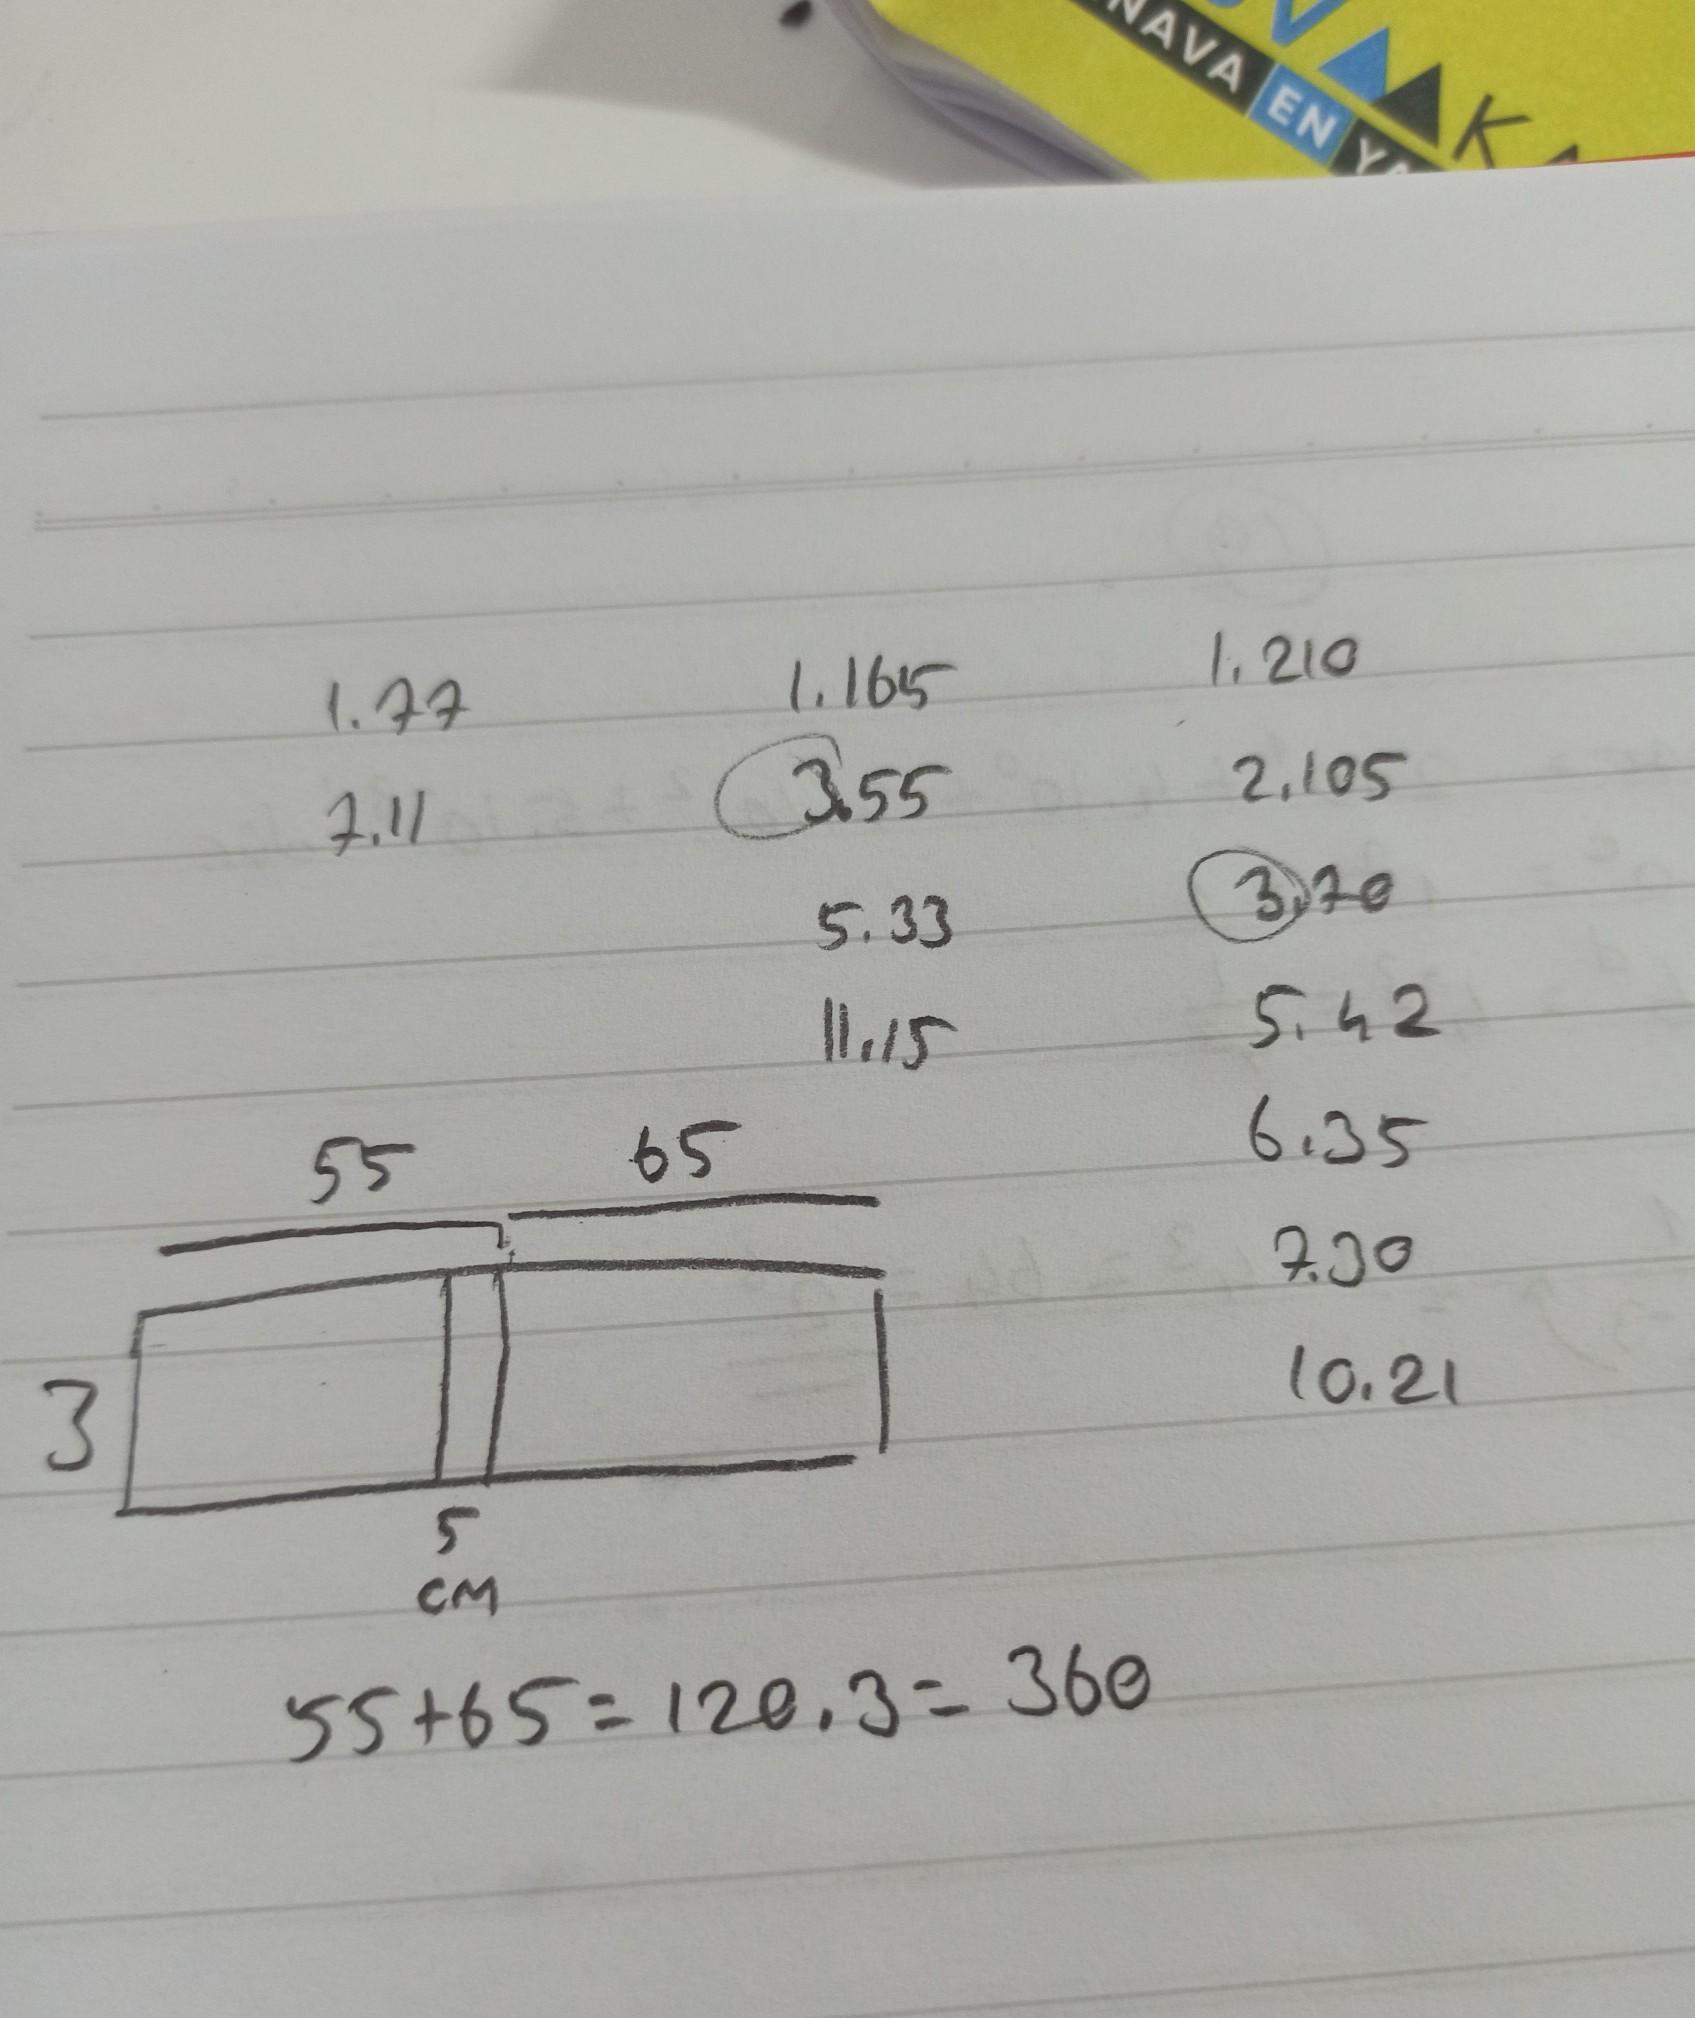 NAVA EN
K
1.77
7.11
1.165
3.55
5.33
11.15
1.210
2.105
3.70
5.42
6.35
7.30
10.21
55
65
3
5
CM
55+65=120.3=360